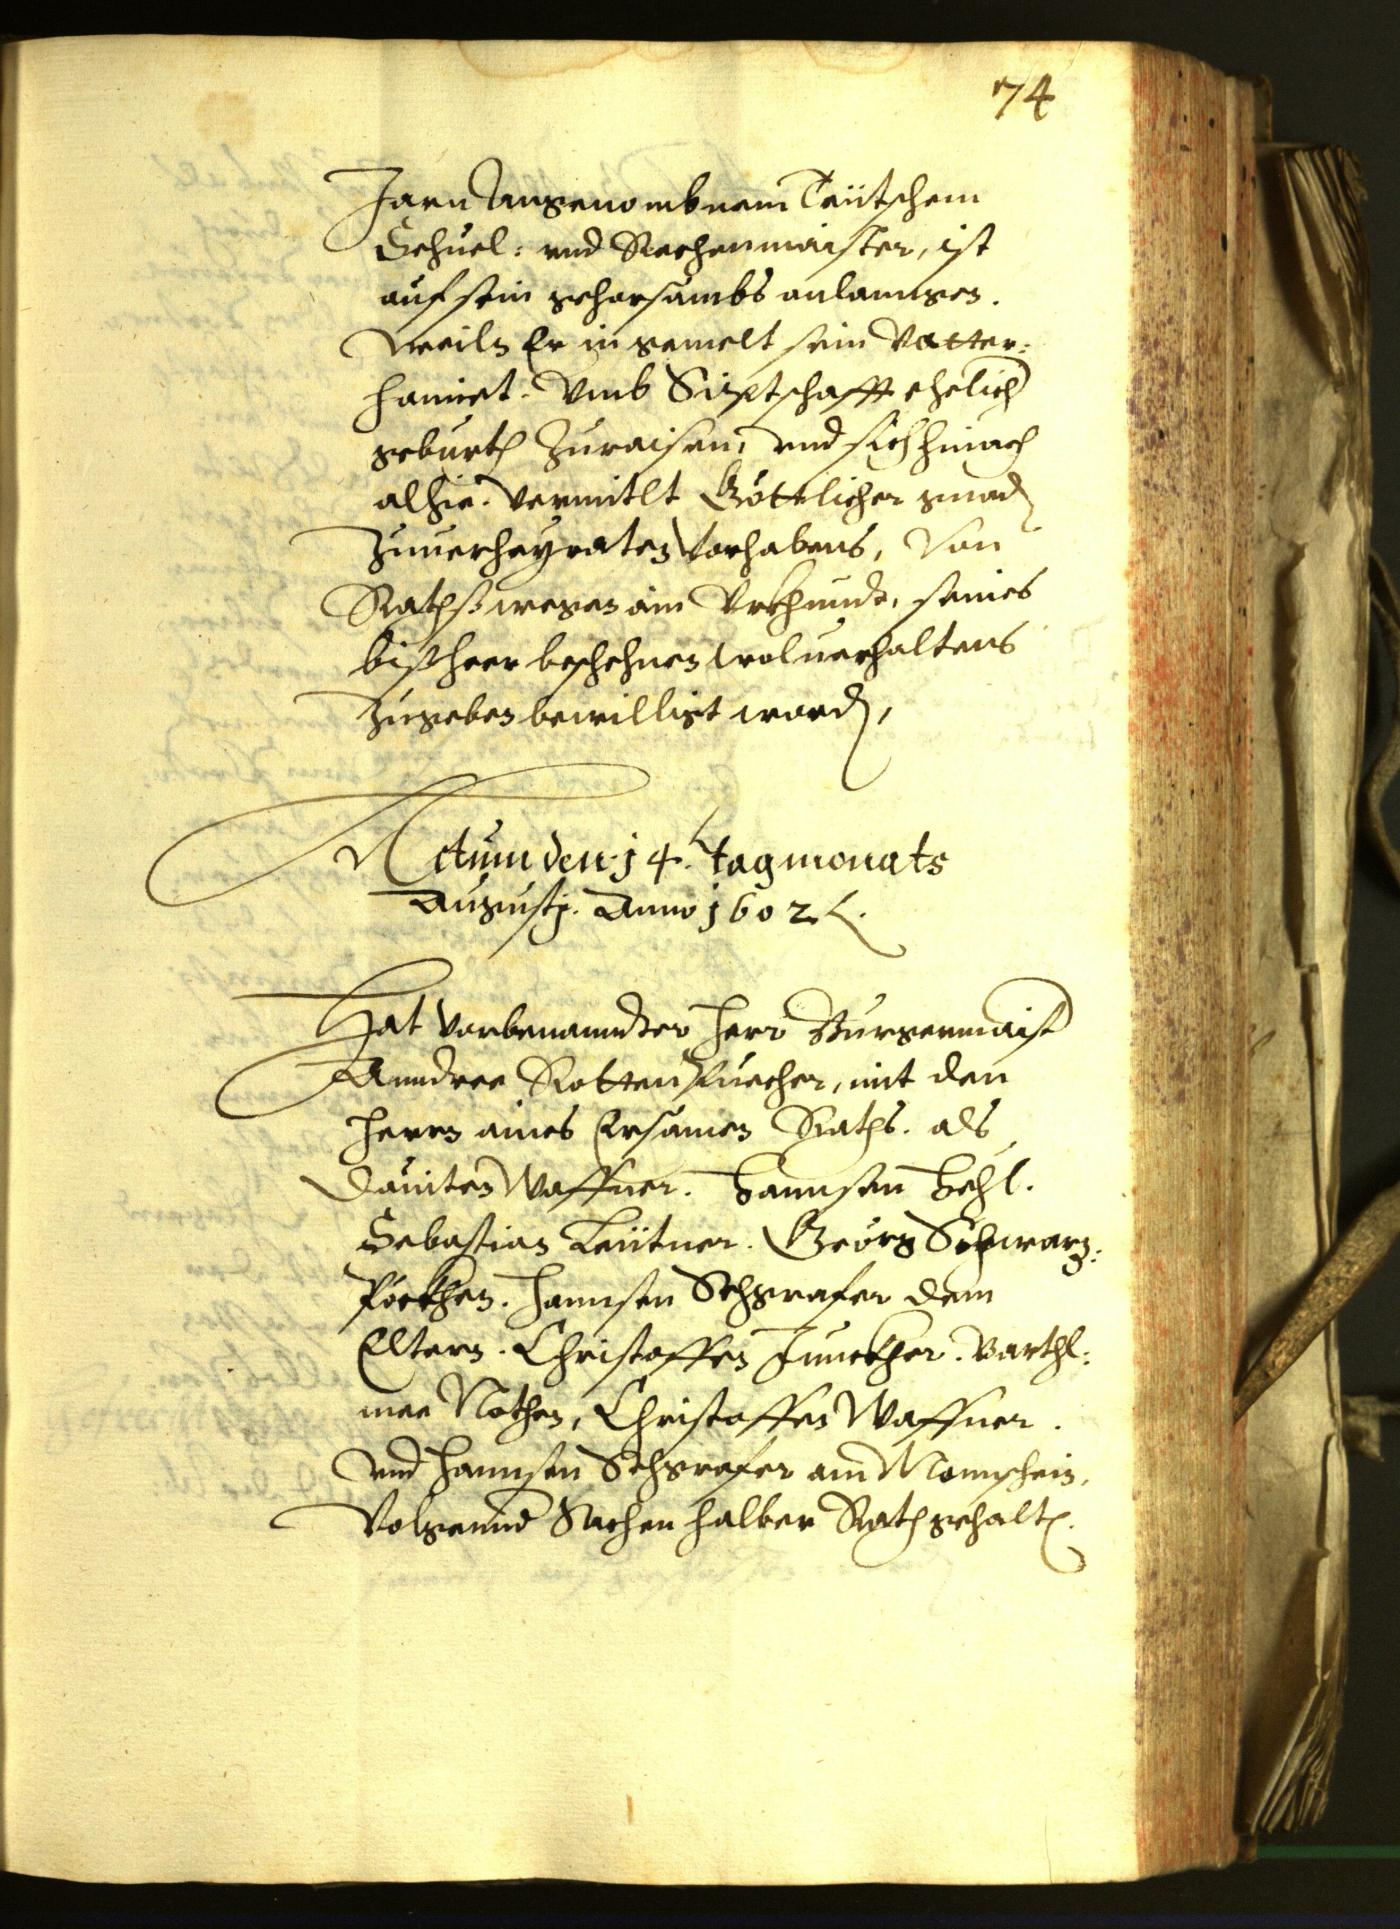 74
Jarn Angenombnem Teütschem
Schuel: vnd Rechenmaister, ist
auf sein gehorsambs anlanngen.
Weiln Er in gemelt sein Vatter:
haimet. Vmb Sipschafft ehelich
geburth Zuraisen, vnd sich hinach
alhie. vermitlt Göttlicher gnad
Zuuerheyraten Vorhabens, Von
Rathßwegen ain Vrkhundt, seines
bißheer beschehnen woluerhaltens
Zugeben bewilligt word,
Actum den 14. tag monats
Augusti. Anno 1602.
Hat Vorbenannder Herr Burgermaist
Anndree Rottenpuecher, mit den
Herrn aines Ersamen Raths. als
Dauiten Waffner. Hannsen Hehl.
Sebastian Leütner. Georg Schwarz:
Pöckhen. Hannsen Schgrafer dem
Eltern. Christoffen Junckher. Barthl:
mee Nothen, Christoffen Waffner.
vnd Hannsen Schgrafer am Monschein.
Volgennd Sachen halber Rath gehalt.